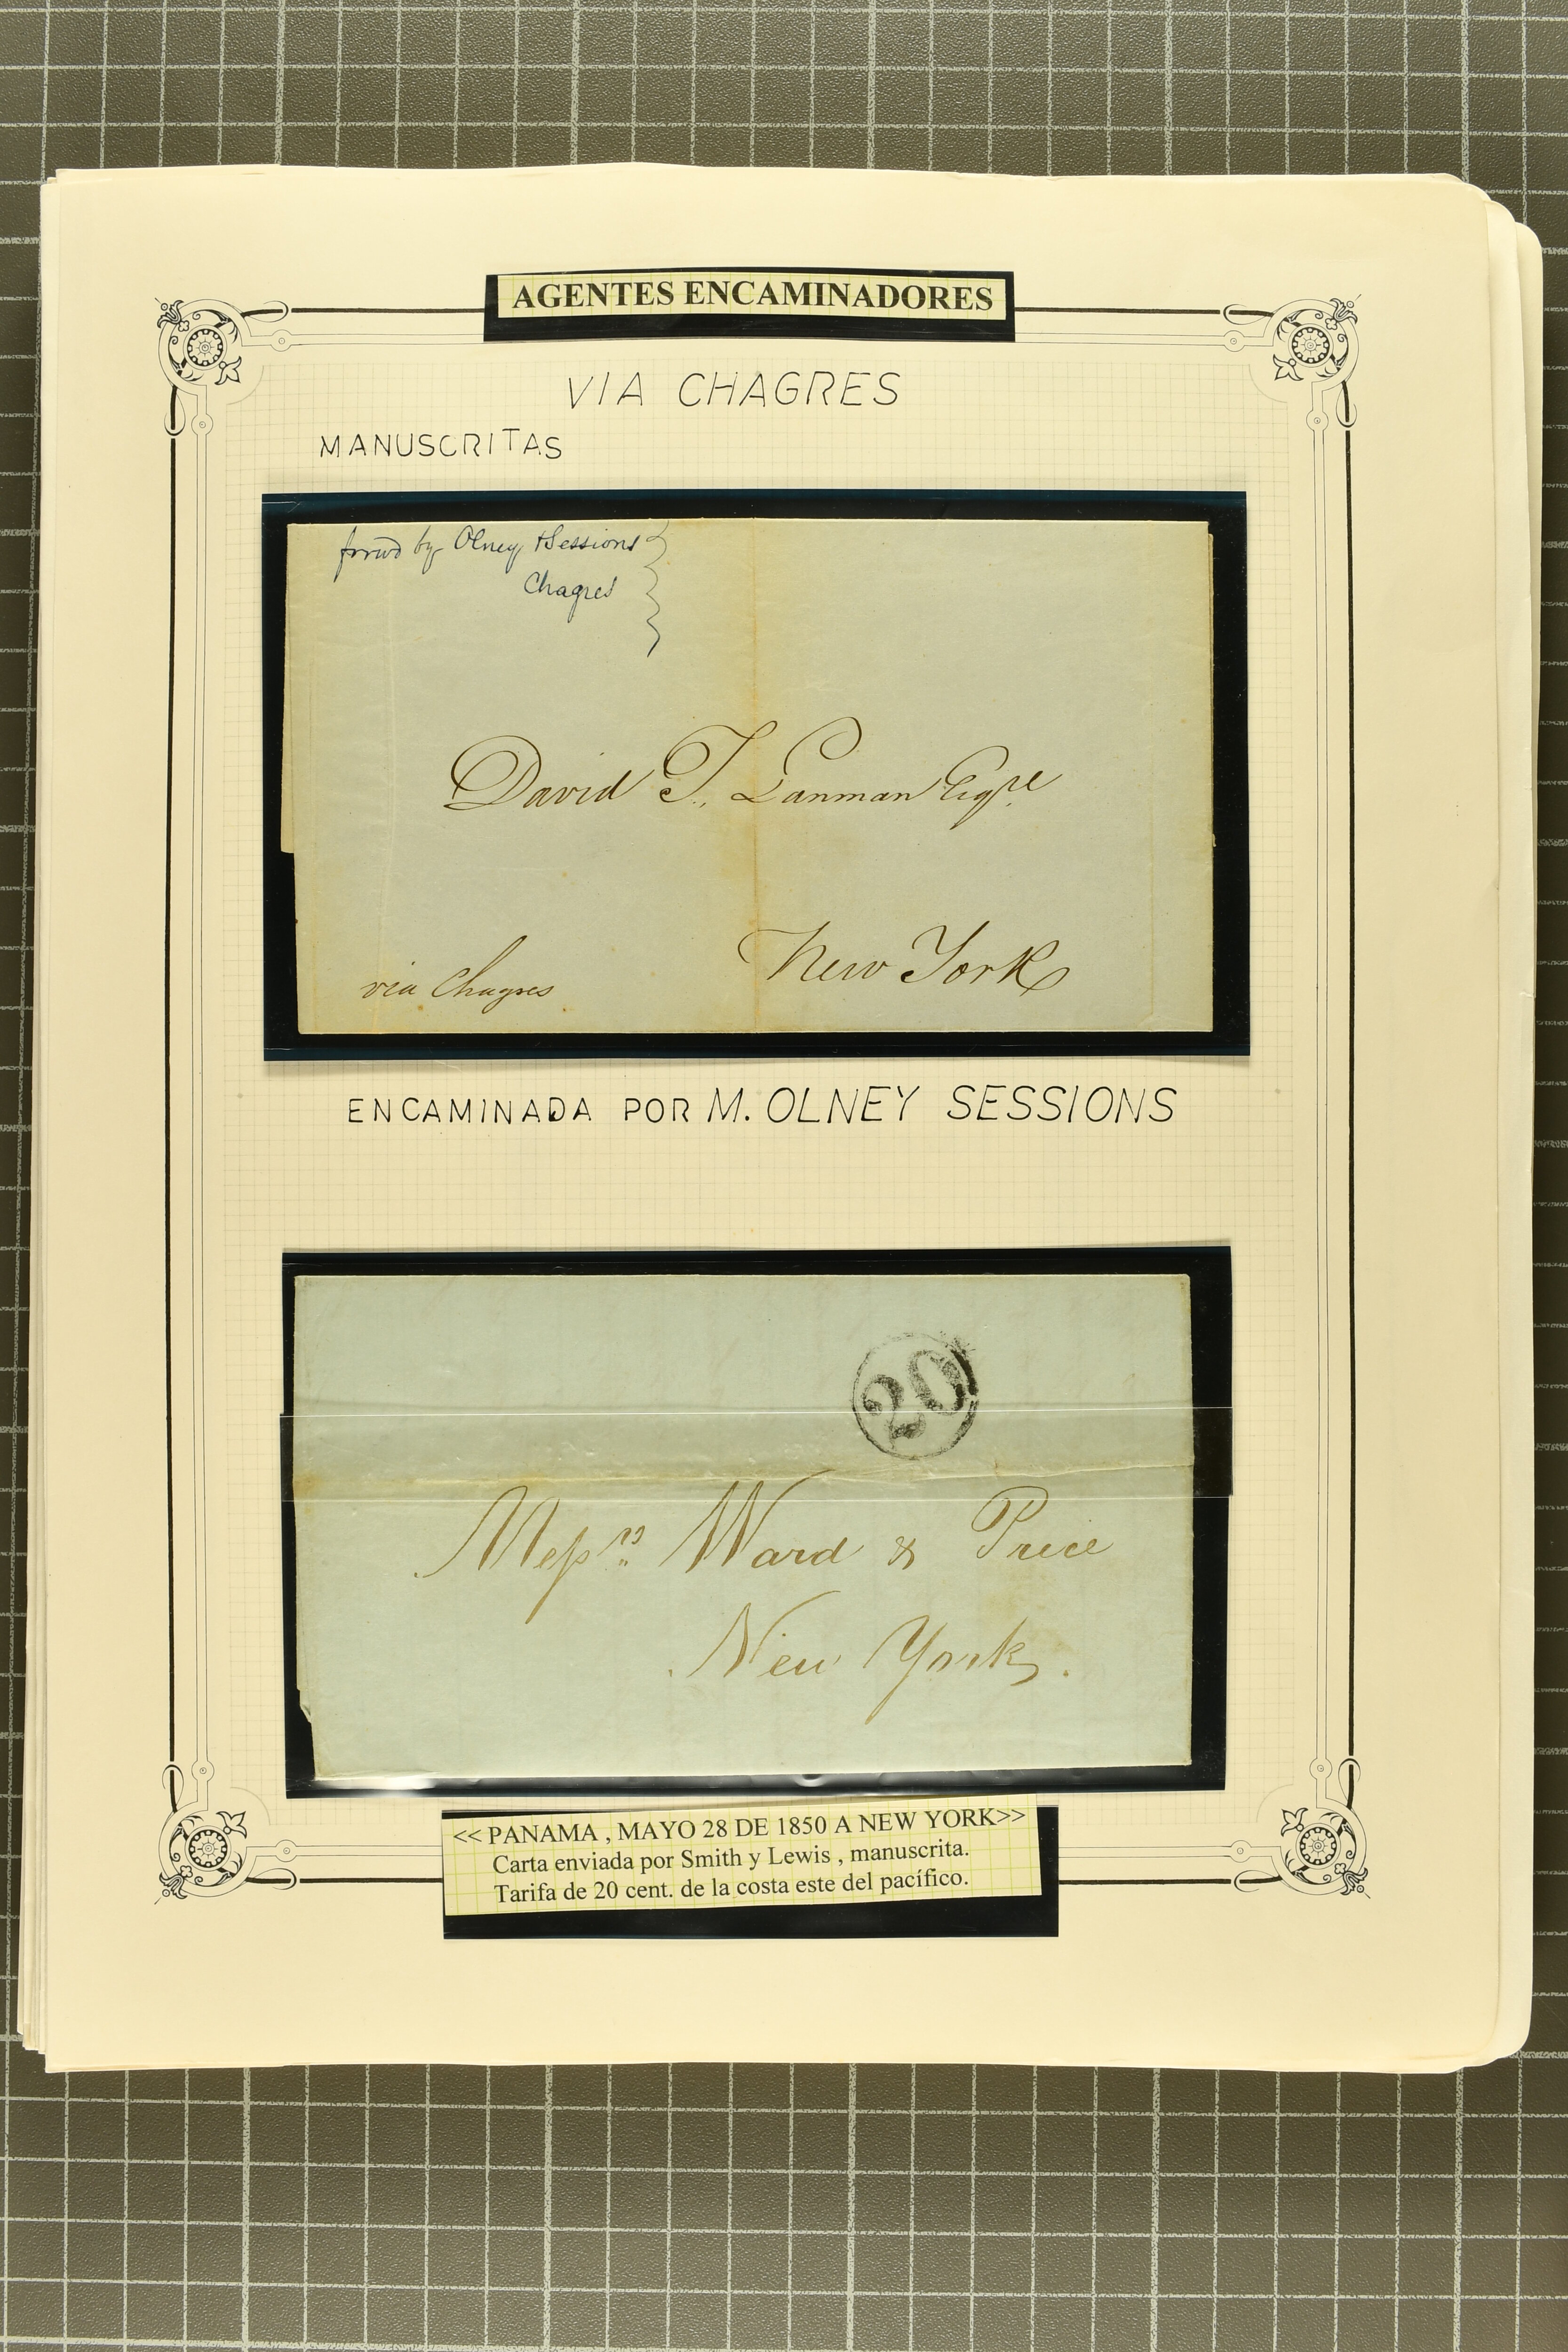 AGENTES ENCAMINADORES
VIA CHAGRES
MANUSCRITAS
forwd by Olney &Sessions
Chagres
David T. Lanman Esqre
New York
via Chagres
ENCAMINADA POR M. OLNEY SESSIONS
20
Messrs Ward & Price
New York.
<< PANAMA , MAYO 28 DE 1850 A NEW YORK>>
Carta enviada por Smith y Lewis , manuscrita.
Tarifa de 20 cent. de la costa este del pacífico.